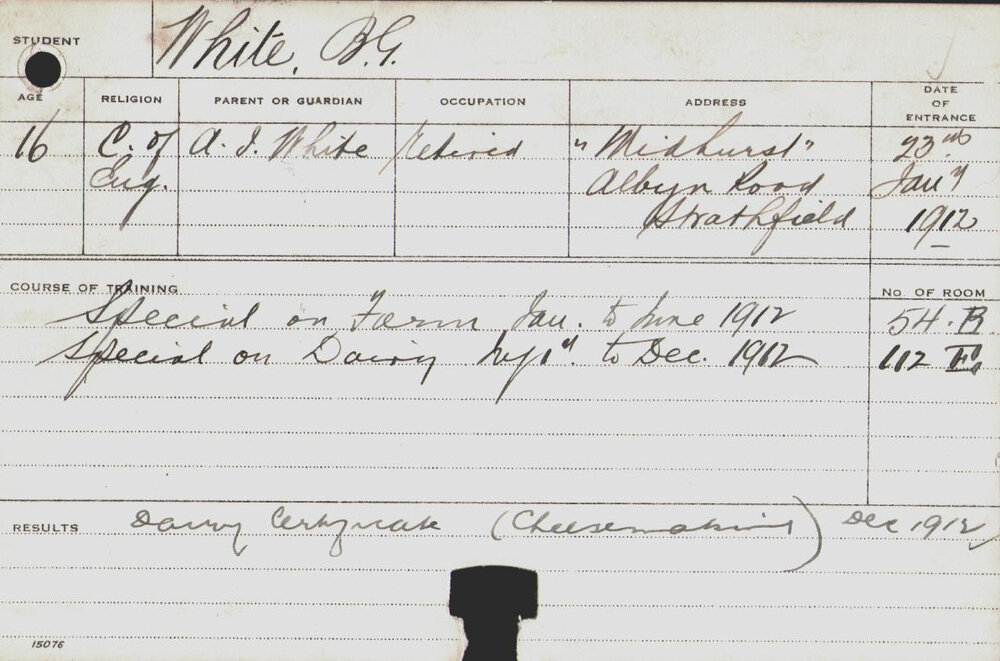 STUDENT White, B.G.
AGE RELIGION PARENT OR GUARDIAN OCCUPATION ADDRESS DATE OF ENTRANCE
16 C. of A. J. White Retired "Midhurst" 23rd
Eng. Albyn Road Jany
Strathfield 1912
COURSE OF TRAINING No. OF ROOM
Special on Farm Jan. to June 1912 54. B.
Special on Dairy to Dec. 1912 112
RESULTS Dairy Certificate (Cheesemaking) Dec 1912
15076